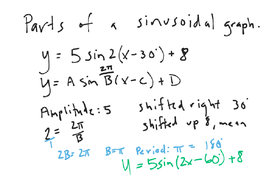 Parts of a sinusoidal graph.
y = 5 sin 2(x-30°) + 8
y = A sin 2π/B (x-c) + D
Amplitude: 5 shifted right 30°
2/1 = 2π/B shifted up 8, mean
2B = 2π B = π Period: π = 180°
y = 5sin(2x-60°) + 8